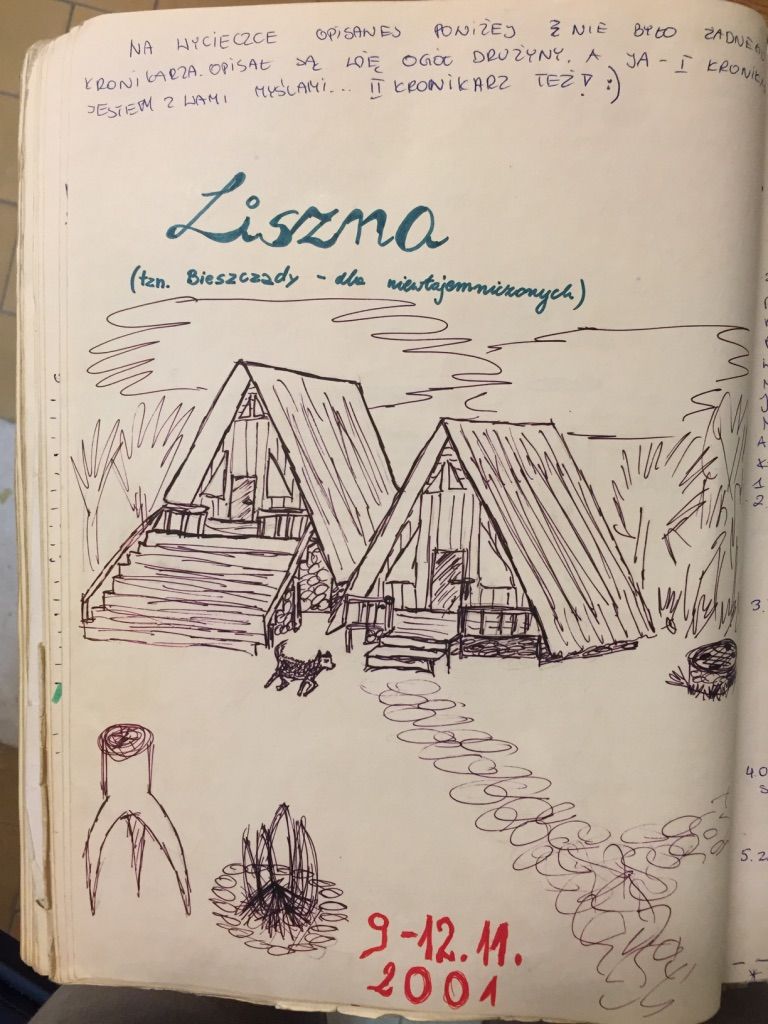 NA WYCIECZCE OPISANEJ PONIŻEJ NIE BYŁO ŻADNEGO
KRONIKARZA. OPISAŁ JĄ WIĘC OGÓŁ DRUŻYNY. A JA - I KRONIKA
JESTEM Z WAMI MYŚLAMI... II KRONIKARZ TEŻ! :)
Liszna
(tzn. Bieszczady - dla niewtajemniczonych)
9-12.11.
2001
1
2
3.
4.
5.